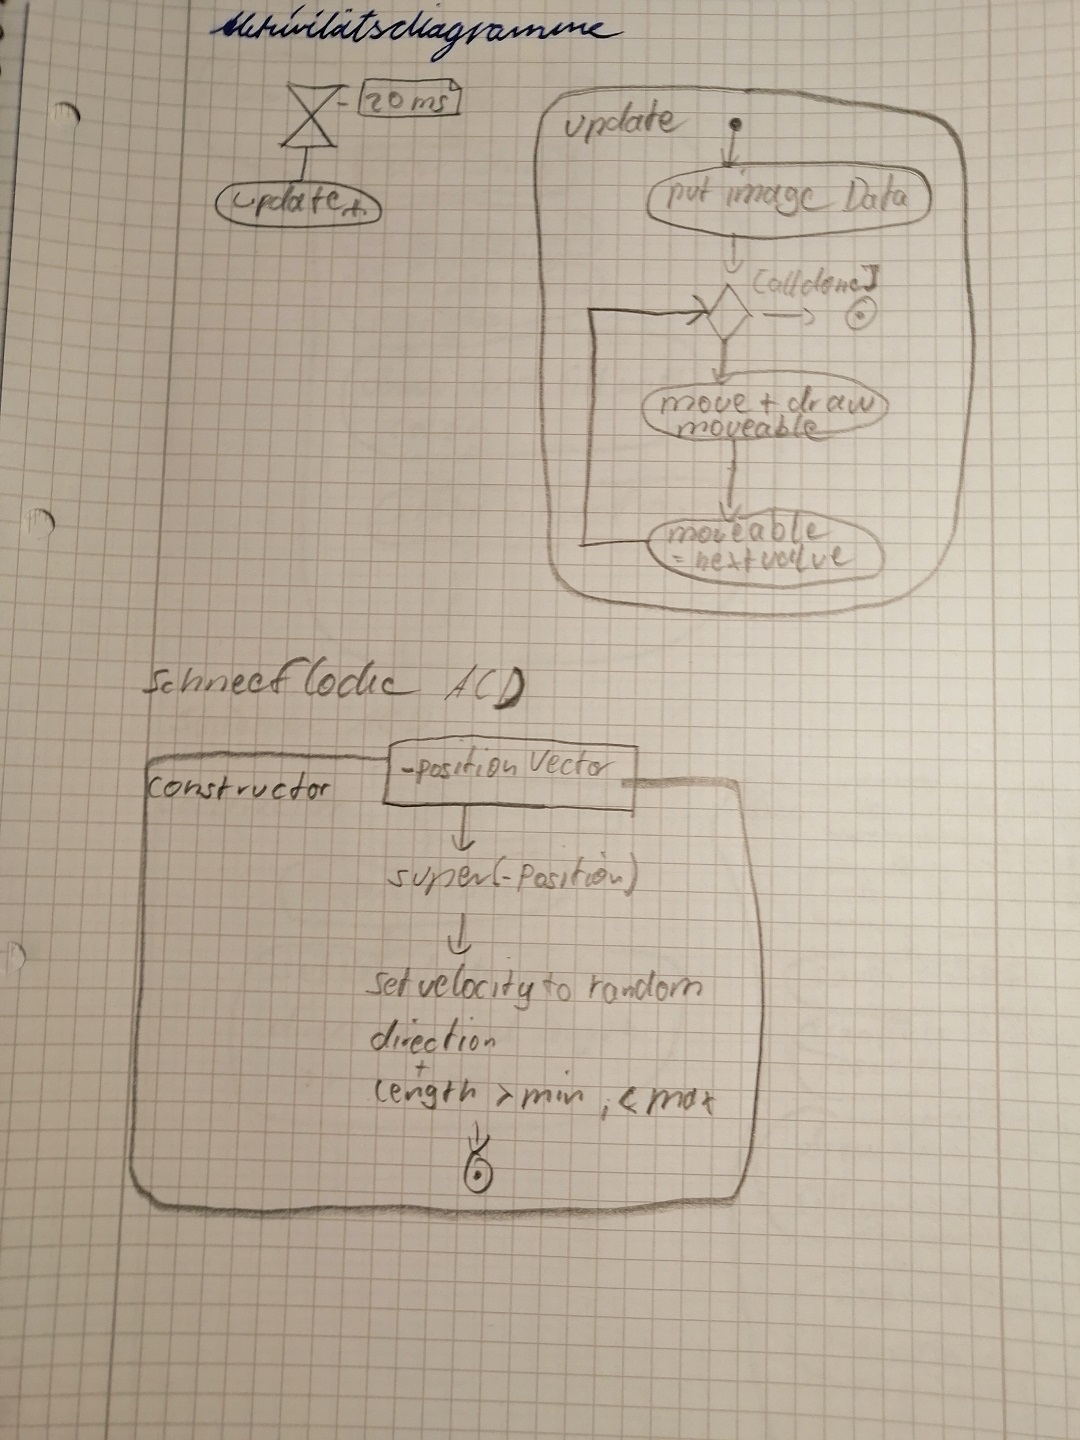 Aktivitätsdiagramme
20 ms
update
update
put image Data
[all done]
move + draw
moveable
moveable
= next value
Schneeflocke ACD
constructor
-position Vector
super(-position)
set velocity to random
direction
+
length > min , < max